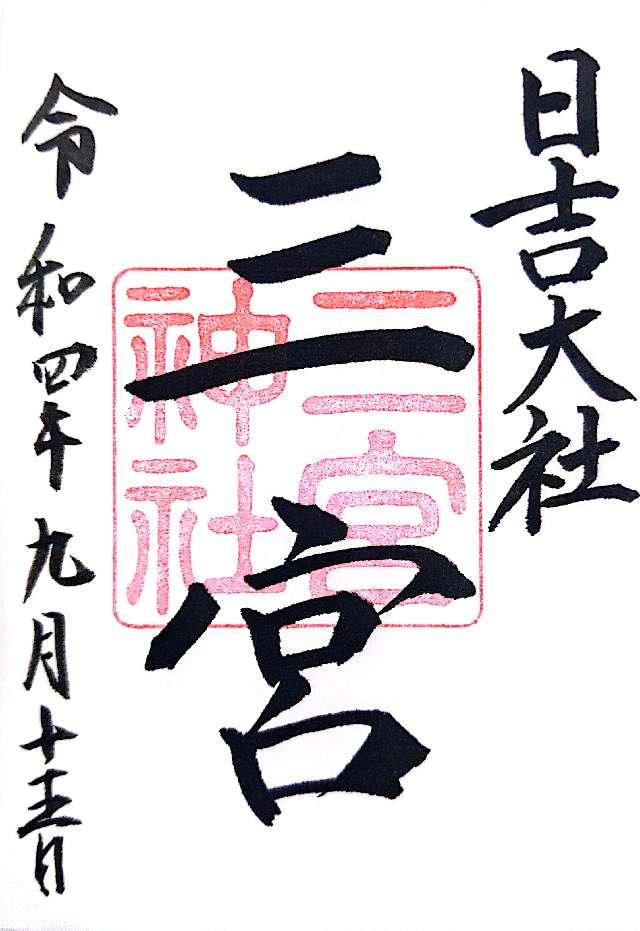 日吉大社
三宮
三宮
神社
令和四年九月十五日